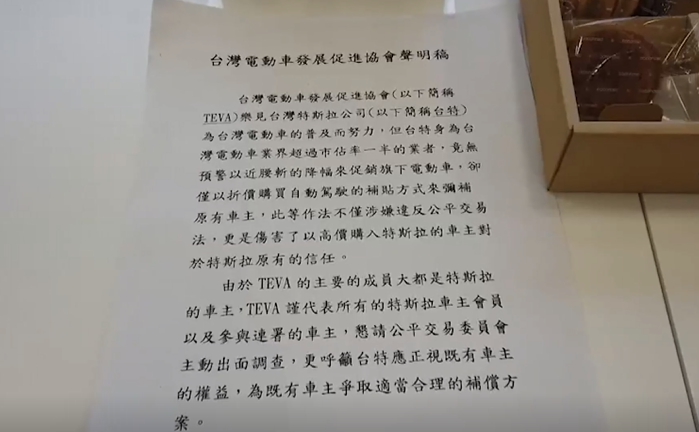 台灣電動車發展促進協會聲明稿
台灣電動車發展促進協會(以下簡稱
TEVA)樂見台灣特斯拉公司(以下簡稱台特)
為台灣電動車的普及而努力，但台特身為台
灣電動車業界超過市佔率一半的業者，竟無
預警以近腰斬的降幅來促銷旗下電動車，卻
僅以折價購買自動駕駛的補貼方式來彌補
原有車主，此等作法不僅涉嫌違反公平交易
法，更是傷害了以高價購入特斯拉的車主對
於特斯拉原有的信任。
由於 TEVA 的主要的成員大都是特斯拉
的車主，TEVA 謹代表所有的特斯拉車主會員
以及參與連署的車主，懇請公平交易委員會
主動出面調查，更呼籲台特應正視既有車主
的權益，為既有車主爭取適當合理的補償方
案。